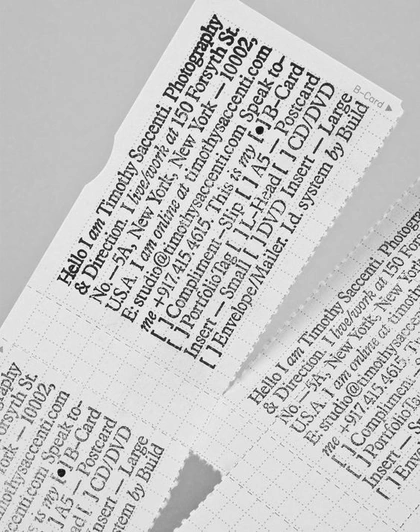 B-Card ▶
Hello I am Timothy Saccenti Photography
& Direction. I live/work at 150 Forsyth St.
No. — 5A, New York, New York — 10002,
U.S.A. I am online at timothysaccenti.com
E: studio@timothysaccenti.com Speak to–
me +917.415.4615. This is my [●] B-Card
[ ] Compliment–Slip [ ] A5 — Postcard
[ ] PortfolioTag [ ] L-Head [ ] CD/DVD
Insert — Small [ ] DVD Insert — Large
[ ] Envelope/Mailer. I.d. system by Build
Hello I am Timothy Saccenti
& Direction. I live/work at 150
No. — 5A, New York, New York
U.S.A. I am online at
E: studio@timothysaccenti
me +917.415.4615.
[ ] Compliment
[ ] Portfolio
Insert
Forsyth St.
York — 10002,
Speak to–
my [●] B-Card
[ ] A5 — Postcard
[ ] CD/DVD
Insert — Large
system by Build